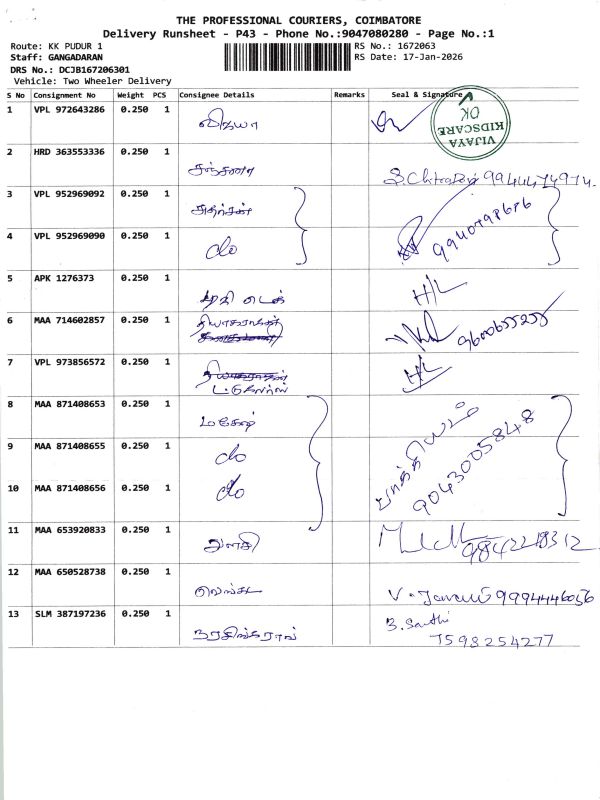 THE PROFESSIONAL COURIERS, COIMBATORE
Delivery Runsheet - P43 - Phone No.:9047080280 - Page No.:1
Route: KK PUDUR 1 RS No.: 1672063
Staff: GANGADARAN RS Date: 17-Jan-2026
DRS No.: DCJB167206301
Vehicle: Two Wheeler Delivery
S No Consignment No Weight PCS Consignee Details Remarks Seal & Signature
1 VPL 972643286 0.250 1 வித்யா VIJAYA KIDSCARE OK
2 HRD 363553336 0.250 1 சஞ்சனா 9944474974
3 VPL 952969092 0.250 1 9940798686
4 VPL 952969090 0.250 1 do
5 APK 1276373 0.250 1 H/L
6 MAA 714602857 0.250 1 9600655255
7 VPL 973856572 0.250 1 H/L
8 MAA 871408653 0.250 1 மகேஷ்
9 MAA 871408655 0.250 1 do 9043005848
10 MAA 871408656 0.250 1 do
11 MAA 653920833 0.250 1 துளசி
12 MAA 650528738 0.250 1 9994446056
13 SLM 387197236 0.250 1 நரசிங்கராவ் B. Santhi
7598254277